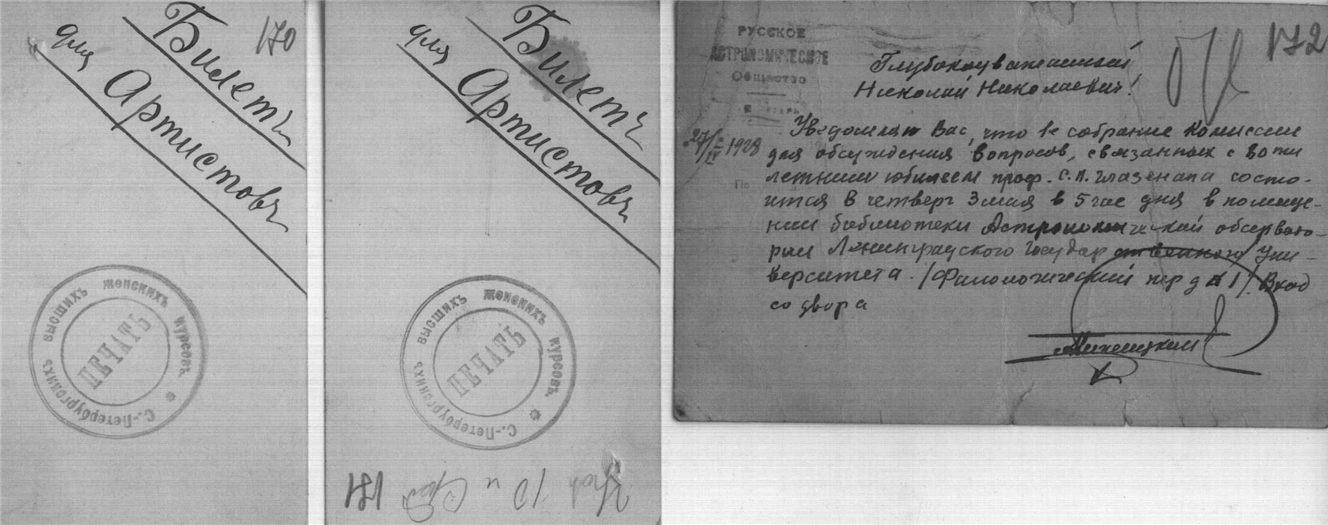 170
Билетъ
для
Артистовъ
С.-Петербургскихъ высшихъ женскихъ курсовъ.
ПЕЧАТЬ
Билетъ
для
Артистовъ
С.-Петербургскихъ высшихъ женскихъ курсовъ.
ПЕЧАТЬ
171
172
РУССКОЕ
АСТРОНОМИЧЕСКОЕ
Общество
1928
Глубокоуважаемый
Николай Николаевич!
Уведомляю Вас, что 1е собрание комиссии
для обсуждения вопросов, связанных с 80ти
летним юбилеем проф. С.П. Глазенапа состо-
ится в четверг 3 мая в 5 час дня в помеще-
нии библиотеки Астрономической обсервато-
рии Ленинградского Государственного Уни-
верситета. (Филологический пер д 1) Вход
со двора